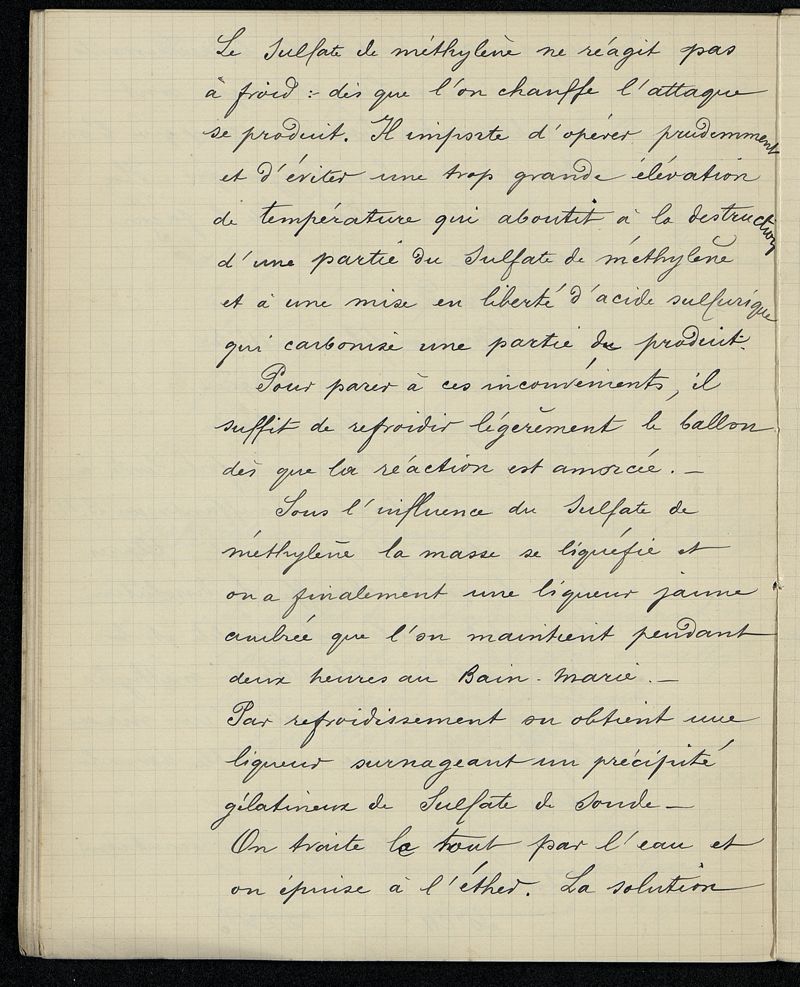 Le Sulfate de méthylène ne réagit pas
à froid : dès que l'on chauffe l'attaque
se produit. Il importe d'opérer prudemment
et d'éviter une trop grande élévation
de température qui aboutit à la destruction
d'une partie du Sulfate de méthylène
et à une mise en liberté d'acide sulfurique
qui carbonise une partie du produit.
Pour parer à ces inconvénients, il
suffit de refroidir légèrement le ballon
dès que la réaction est amorcée. —
Sous l'influence du Sulfate de
méthylène la masse se liquéfie et
on a finalement une liqueur jaune
ambrée que l'on maintient pendant
deux heures au Bain-Marie. —
Par refroidissement on obtient une
liqueur surnageant un précipité
gélatineux de Sulfate de Soude —
On traite le tout par l'eau et
on épuise à l'éther. La solution